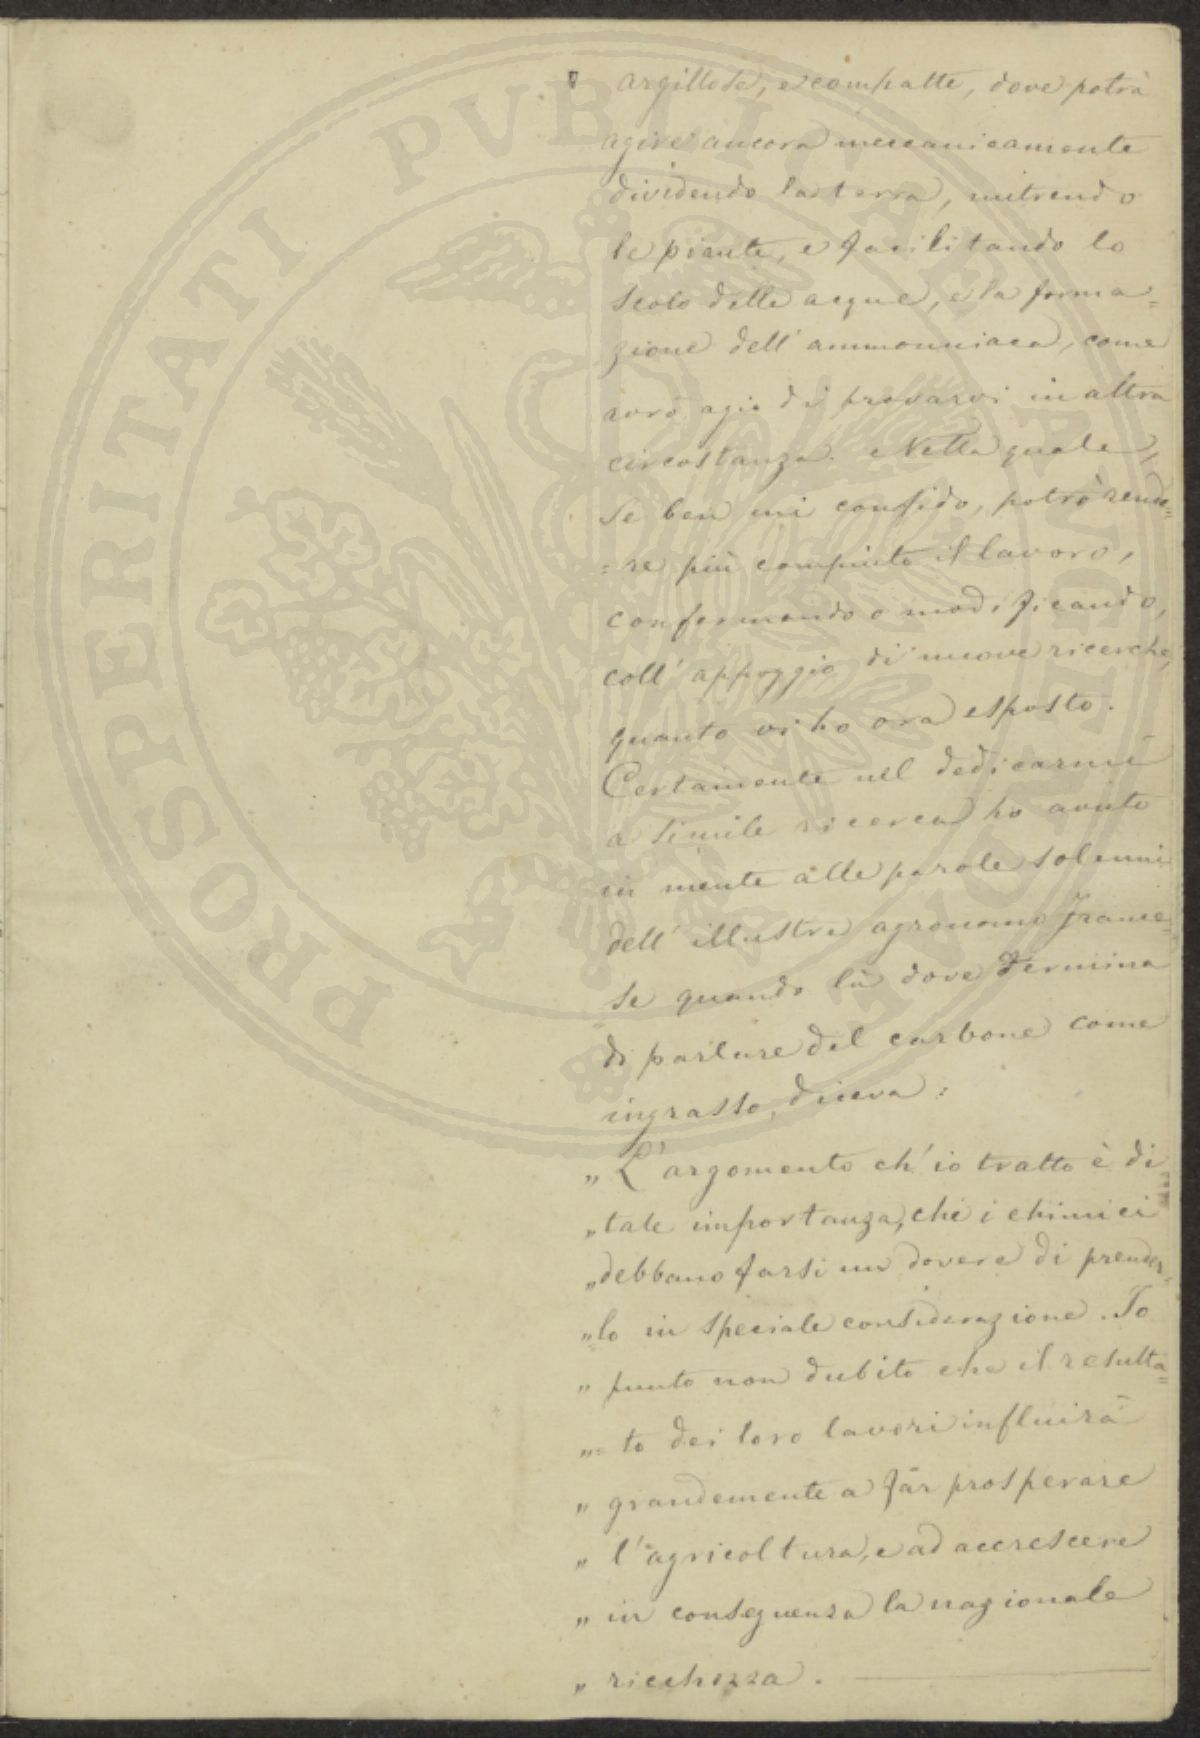 argillose, e compatte, dove potrà
agire ancora meccanicamente
dividendo la terra, nutrendo
le piante, e facilitando lo
scolo delle acque, e la forma=
zione dell' ammonniaca, come
avrò agio di provarvi in altra
circostanza. Nella quale,
se ben mi confido, potrò rende=
=re più compiuto il lavoro,
confermando o modificando,
coll' appoggio di nuove ricerche,
quanto vi ho ora esposto.
Certamente nel dedicarmi
a simile ricerca ho avuto
in mente alle parole solenni
dell' illustre agronomo france=
se quando là dove termina
di parlare del carbone come
ingrasso, diceva:
„ L' argomento ch' io tratto è di
„ tale importanza, che i chimici
„ debbano farsi un dovere di prender=
„ lo in speciale considerazione. Io
„ punto non dubito che il resulta=
„ = to dei loro lavori influirà
„ grandemente a far prosperare
„ l' agricoltura, e ad accrescere
„ in conseguenza la nazionale
„ ricchezza.
PROSPERITATI PVBLICAE AVGENDAE